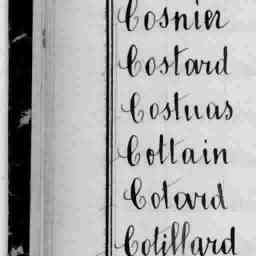 Cosnier
Costard
Costuas
Cottain
Cotard
Cotillard